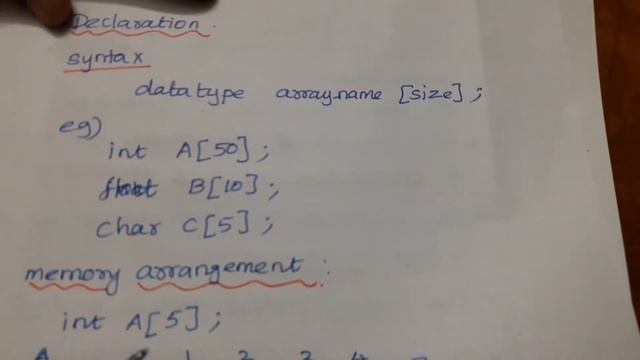 Declaration.
syntax
datatype array name [size];
eg)
int A[50];
float B[10];
char C[5];
memory arrangement:
int A[5];
A 1 2 3 4